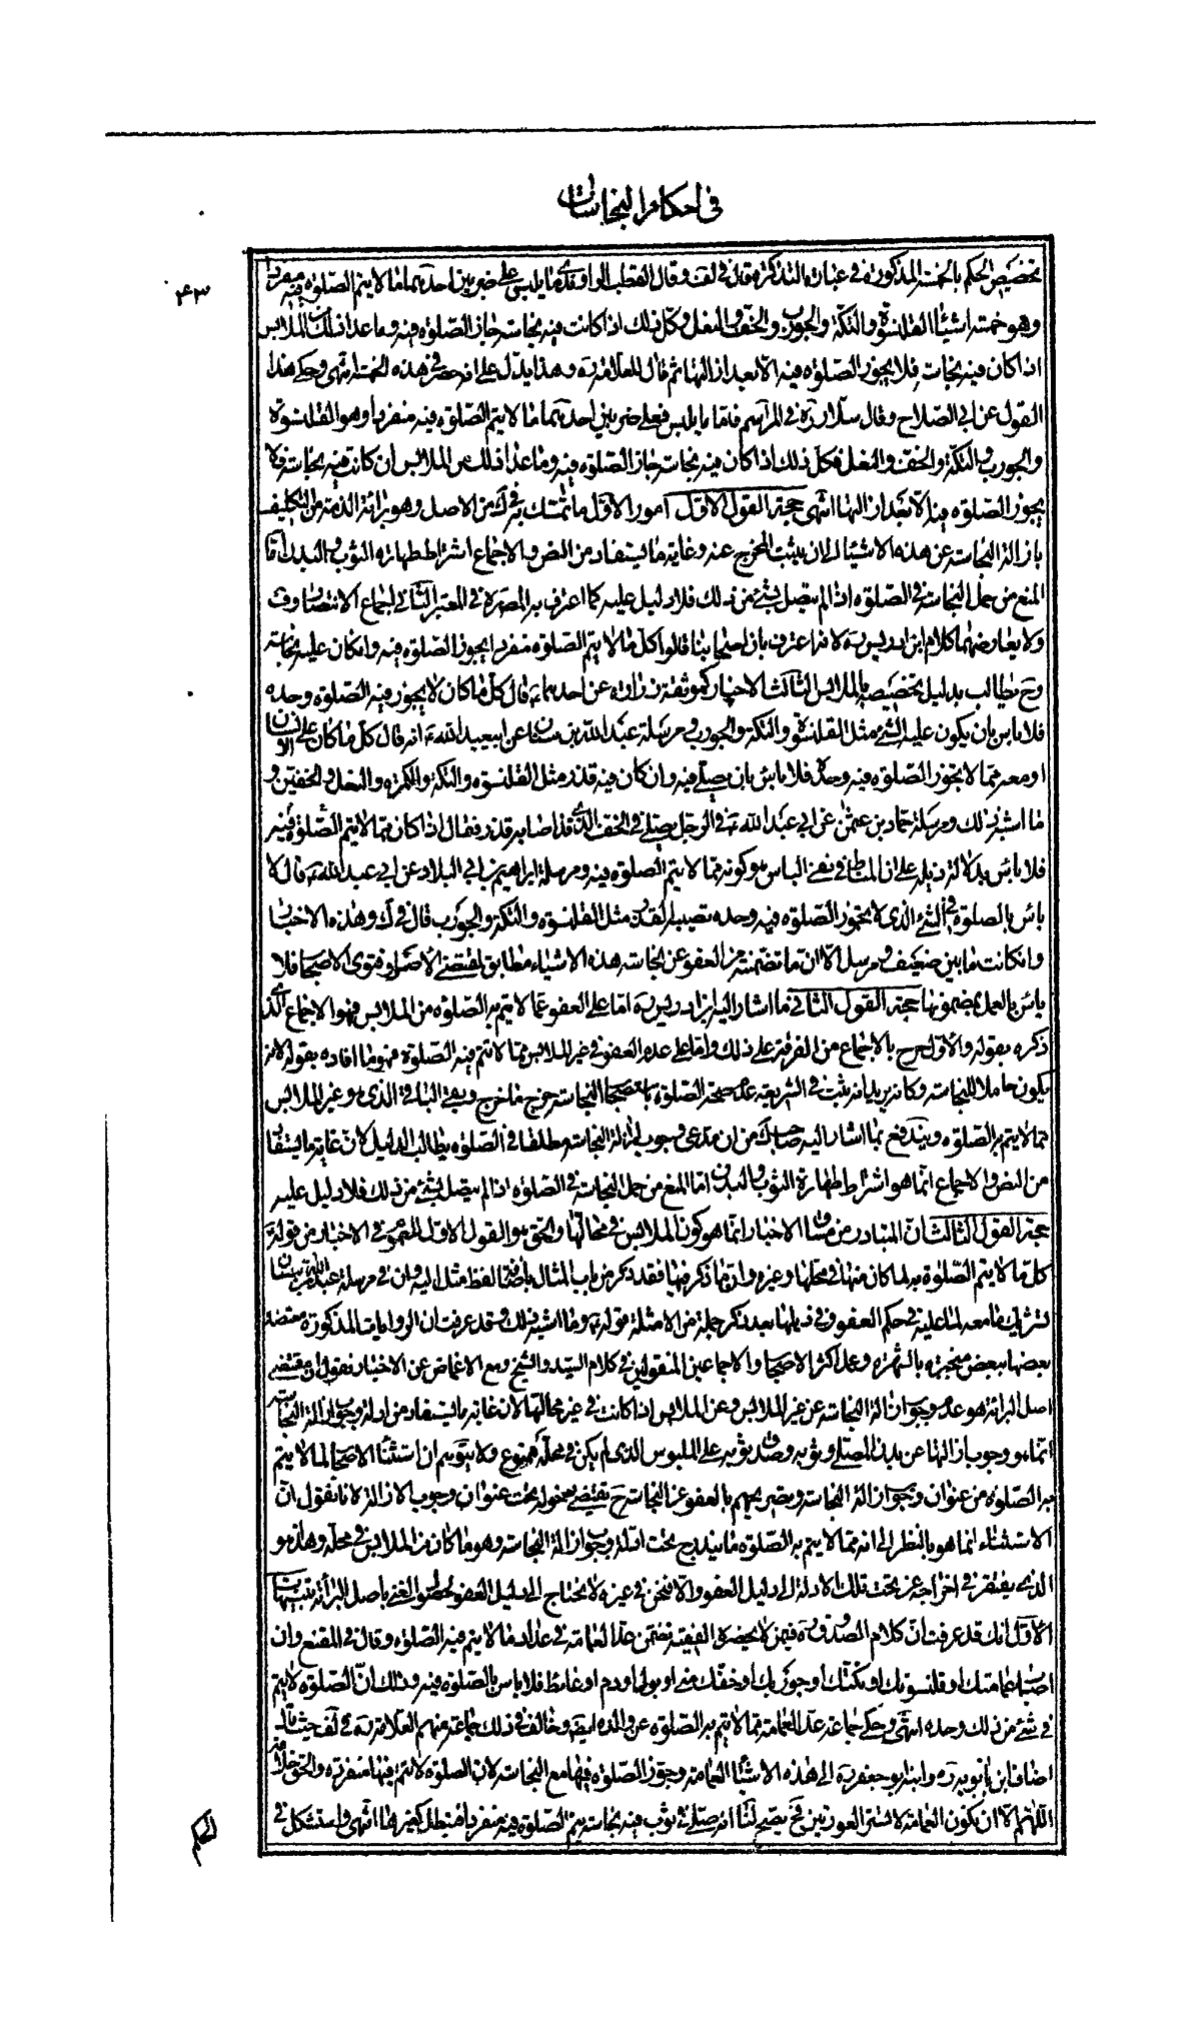 في احكام النجاسات
۴۳
تخصيص الحكم بالخمسة المذكورة في عبارة التذكرة فقال في لف وقال القطب الراوندي ما يلبس على ضربين احدهما ما لا يتم الصلوة فيه منفردا
وهو خمسة اشياء القلنسوة والتكة والجورب والخف والنعل وكل ذلك اذا كانت فيه نجاسة جاز الصلوة فيه وما عدا ذلك من الملابس
اذا كان فيه نجاسة فلا يجوز الصلوة فيه الا بعد ازالتها ثم قال العلامة ره وهذا يدل على انه حصر في هذه الخمسة انتهى وحكي هذا
القول عن ابي الصلاح وقال سلار ره في المراسم فاما ما يلبس فعلى ضربين احدهما ما لا يتم الصلوة فيه منفردا وهو القلنسوة
والجورب والتكة والخف والنعل فكل ذلك اذا كان فيه نجاسة جاز الصلوة فيه وما عدا ذلك من الملابس ان كانت فيه نجاسة فلا
يجوز الصلوة فيه الا بعد ازالتها انتهى حجة القول الاول امور الاول ما تمسك به في ك من الاصل وهو برائة الذمة من التكليف
بازالة النجاسة عن هذه الاشياء الى ان يثبت المخرج عنه وغاية ما يستفاد من النص والاجماع اشتراط طهارة الثوب والبدن اما
المنع من حمل النجاسة في الصلوة اذا لم يتصل بشيء من ذلك فلا دليل عليه كما اعترف به المصره في المعتبر الثاني اجماع الانتصار وف
ولا يعارضهما كلام ابن ادريس ره لانه اعترف بان اصحابنا قالوا كل ما لا يتم الصلوة منفردا يجوز الصلوة فيه وان كان عليه نجاسة
وح يطالب بدليل تخصيصه بالملابس الثالث الاخبار كموثقة زرارة عن احدهما ع قال كل ما كان لا يجوز فيه الصلوة وحده
فلا باس بان يكون عليه الشيء مثل القلنسوة والتكة والجورب ومرسلة عبد الله بن سنان عن ابيعبد الله ع انه قال كل ما كان على الانسان
او معه مما لا يجوز الصلوة فيه وحده فلا باس بان يصلي فيه وان كان فيه قذر مثل القلنسوة والتكة والكمرة والنعل والخفين و
ما اشبه ذلك ومرسلة حماد بن عثمن عن ابي عبد الله ع في الرجل يصلي في الخف الذي قد اصابه قذر فقال اذا كان مما لا يتم الصلوة فيه
فلا باس بدلالة ذيله على ان المناط في نفي الباس هو كونه مما لا يتم الصلوة فيه ومرسلة ابراهيم بن ابي البلاد عن ابي عبد الله ع قال لا
باس بالصلوة في الشيء الذي لا يجوز الصلوة فيه وحده تصيب القذر مثل القلنسوة والتكة والجورب قال في ك وهذه الاخبار
وان كانت ما بين ضعيف ومرسل الا ان ما تضمنته من العفو عن نجاسة هذه الاشياء مطابق لمقتضى الاصل وفتوى الاصحاب فلا
باس بالعمل بمضمونها حجة القول الثاني ما اشار اليه ابن ادريس ره اما على العفو عما لا يتم به الصلوة من الملابس فهو الاجماع الذي
ذكره بقوله والاول خرج بالاجماع من الفرقة على ذلك واما على عدم العفو في غير الملابس مما لا تتم فيه الصلوة فهو ما افاده بقوله لانه
يكون حاملا للنجاسة وكانه يريد انه ثبت في الشريعة عدم صحة الصلوة باستصحاب النجاسة خرج ما خرج وبقي الباقي الذي هو غير الملابس
مما لا يتم به الصلوة ويندفع بما اشار اليه صاحب ك من ان مدعي وجوب ازالة النجاسة مطلقا في الصلوة يطالب بالدليل لان غاية ما يستفاد
من النص والاجماع انما هو اشتراط طهارة الثوب والبدن اما المنع من حمل النجاسة في الصلوة اذا لم يتصل بشيء من ذلك فلا دليل عليه
حجة القول الثالث ان المتبادر من مساق الاخبار انما هو كون الملابس في محالها والحق هو القول الاول للعموم في الاخبار من قوله ع
كل ما لا يتم الصلوة به لما كان منها في محلها وغيره وان ما ذكر فيها فقد ذكر من باب المثال باضافة لفظ مثل اليه وان في مرسلة عبد الله بن سنان
تشريك ما معه لما عليه في حكم العفو وفي ذيلها بعد ذكر جملة من الامثلة قوله ع وما اشبه ذلك وقد عرفت ان الروايات المذكورة معتضد
بعضها ببعض منجبرة بالشهرة وعمل اكثر الاصحاب والاجماعين المنقولين في كلام السيد والشيخ ومع الاغماض عن الاخبار نقول ان مقتضى
اصل البرائة هو عدم وجوب ازالة النجاسة عن غير الملابس وعن الملابس اذا كانت في غير محالها لان غاية ما يستفاد من ادلة وجوب ازالة النجاسة
انما هو وجوب ازالتها عن بدن المصلي وثوبه وصدق ثوبه على الملبوس الذي لم يكن في محله ممنوع ولا يتوهم ان استثناء الاصحاب لما لا يتم
به الصلوة من عنوان وجوب ازالة النجاسة وتصريحهم بالعفو عن النجاسة ح يقتضي دخوله تحت عنوان وجوب الازالة لانا نقول ان
الاستثناء انما هو بالنظر الى انه مما لا يتم به الصلوة ما يندرج تحت ادلة وجوب ازالة النجاسة وهو ما كان من الملابس في محله وهذا هو
الذي يفتقر في اخراجه عن تحت تلك الادلة الى دليل العفو والا فنحن في غيره لا نحتاج الى دليل العفو لحصول الغنى باصل البرائة تنبيهات
الاول انك قد عرفت ان كلام الصدوق ره فيمن لا يحضره الفقيه تضمن عد العمامة في عداد ما لا يتم فيه الصلوة وقال في المقنع وان
اصاب عمامتك او قلنسوتك او تكتك او جوربك او خفك مني او بول او دم او غائط فلا باس بالصلوة فيه وذلك ان الصلوة لا يتم
في شيء من ذلك وحده انتهى وحكى جماعة عد العمامة مما لا يتم به الصلوة عن والده ايضا وخالف في ذلك جماعة منهم العلامة ره في لف حيث قال
اضاف ابن بابويه ره وابنه ابو جعفر ره الى هذه الاشياء العمامة وجوز الصلوة فيها مع النجاسة لان الصلوة لا تتم فيها منفردة والحق خلافه
اللهم الا ان يكون العمامة لا تستر العورتين فح يصح لنا انه صلى في ثوب فيه نجاسة يتم الصلوة فيه منفردا فتبطل كغيرها انتهى واستشكل في
الحكم